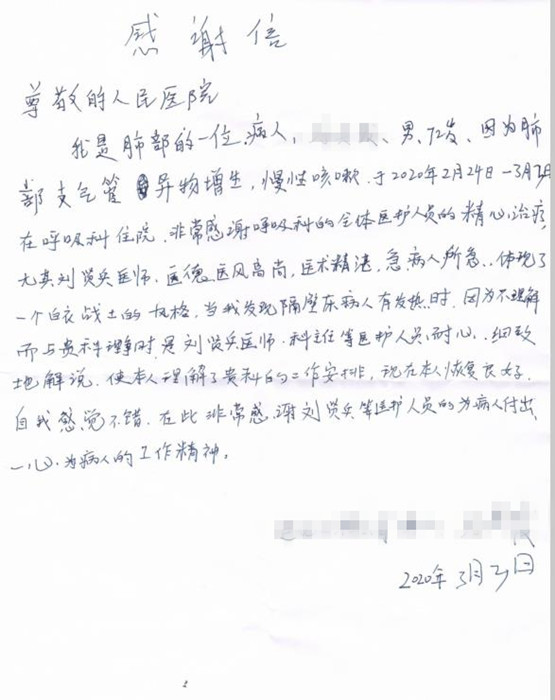 感谢信
尊敬的人民医院
我是肺部的一位病人，、男、72岁、因为肺
部支气管异物增生，慢性咳嗽、于2020年2月24日—3月3日
在呼吸科住院，非常感谢呼吸科的全体医护人员的精心治疗，
尤其刘贤兵医师，医德医风高尚，医术精湛，急病人所急、体现了
一个白衣战士的风格，当我发现隔壁床病人有发热时，因为不理解
而与贵科理时是刘贤兵医师、科主任等医护人员耐心、细致
地解说，使本人理解了贵科的工作安排，现在本人恢复良好，
自我感觉不错，在此非常感谢刘贤兵等医护人员的为病人付出
一心为病人的工作精神。
2020年3月3日
2